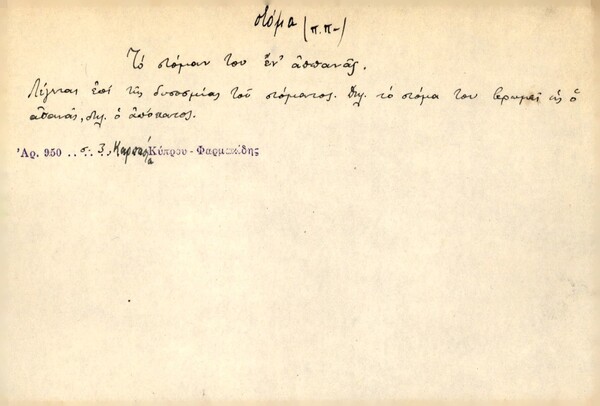 στόμα (π.π-)
Τό στόμαν του ἔν' ἀππανᾶς.
Λέγεται ἐπί τῆς δυσοσμίας τοῦ στόματος. δηλ. τό στόμα του βρωμεῖ ὡς ὁ
ἀπανᾶς, δηλ. ὁ ἀπόπατος.
Ἀρ. 950 σ. 3, Καρπασία Κύπρου - Φαρμακίδης